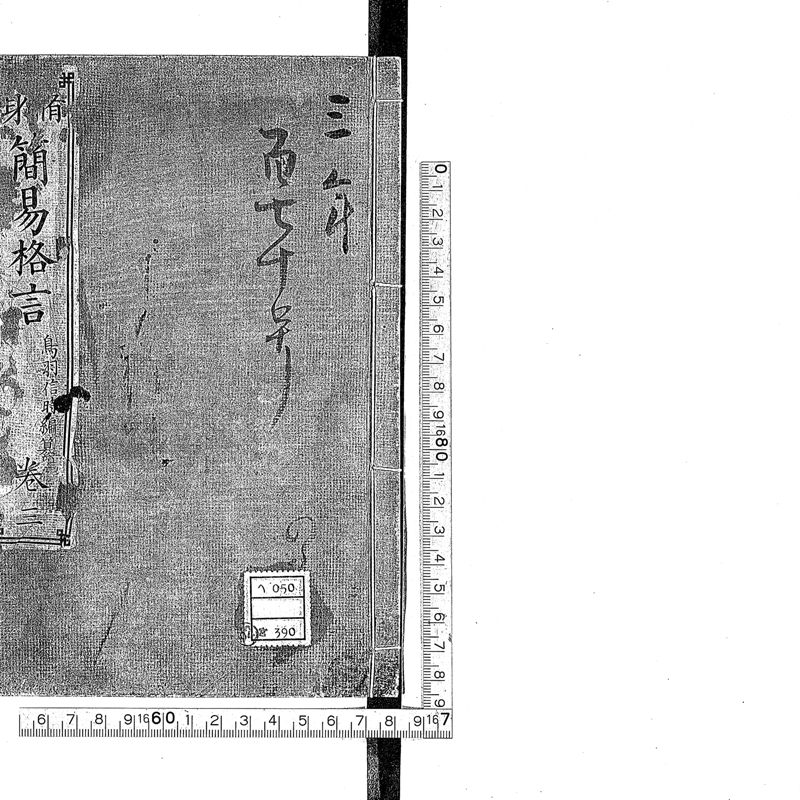 三
百七十
脩身
簡易格言
鳥羽信
編
卷二
ヘ 050
390
0 1 2 3 4 5 6 7 8 9 16 8 0 1 2 3 4 5 6 7 8 9
6 7 8 9 16 6 0 1 2 3 4 5 6 7 8 9 16 7